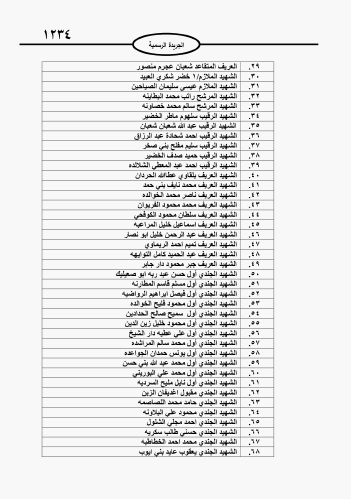 ١٢٣٤
الجريدة الرسمية
٢٩. العريف المتقاعد شعبان عجرم منصور
٣٠. الشهيد الملازم/١ خضر شكري العبيد
٣١. الشهيد الملازم عيسى سليمان الصياحين
٣٢. الشهيد المرشح راتب محمد البطاينه
٣٣. الشهيد المرشح سالم محمد خصاونه
٣٤. الشهيد الرقيب سلهوم ماطر الخضير
٣٥. الشهيد الرقيب عبد الله شعبان شعبان
٣٦. الشهيد الرقيب احمد شحادة عبد الرزاق
٣٧. الشهيد الرقيب سليم مفلح بني صخر
٣٨. الشهيد الرقيب حميد صدف الخضير
٣٩. الشهيد الرقيب احمد عبد المعطي الشلالده
٤٠. الشهيد العريف بلقاوي عطاالله الحردان
٤١. الشهيد العريف محمد نايف بني حمد
٤٢. الشهيد العريف ناصر محمد الخوالده
٤٣. الشهيد العريف محمد محمود الفريوان
٤٤. الشهيد العريف سلطان محمود الكوفحي
٤٥. الشهيد العريف اسماعيل خليل المراعبه
٤٦. الشهيد العريف عبد الرحمن خليل ابو نصار
٤٧. الشهيد العريف تميم احمد الريماوي
٤٨. الشهيد العريف عبد الحميد كامل التوايهه
٤٩. الشهيد العريف جبر محمود دار جابر
٥٠. الشهيد الجندي أول حسن عبد ربه ابو صعيليك
٥١. الشهيد الجندي أول مسلم قاسم المطارنه
٥٢. الشهيد الجندي أول فيصل ابراهيم الرواضيه
٥٣. الشهيد الجندي أول محمود فليح الخوالده
٥٤. الشهيد الجندي أول سميح صالح الحدادين
٥٥. الشهيد الجندي أول محمود خليل زين الدين
٥٦. الشهيد الجندي أول علي عطيه دار الشيخ
٥٧. الشهيد الجندي أول محمد سالم المراشده
٥٨. الشهيد الجندي أول يونس حمدان الجواعده
٥٩. الشهيد الجندي أول محمد عبد الله بني حسن
٦٠. الشهيد الجندي أول محمد علي البوريني
٦١. الشهيد الجندي أول نايل مليح السرديه
٦٢. الشهيد الجندي مقبول اغديفان الزين
٦٣. الشهيد الجندي حامد محمد اللصاصمه
٦٤. الشهيد الجندي محمود علي البلاونه
٦٥. الشهيد الجندي احمد مجلي الشلول
٦٦. الشهيد الجندي حسني طالب سكريه
٦٧. الشهيد الجندي محمد احمد الخطاطبه
٦٨. الشهيد الجندي يعقوب عايد بني ايوب